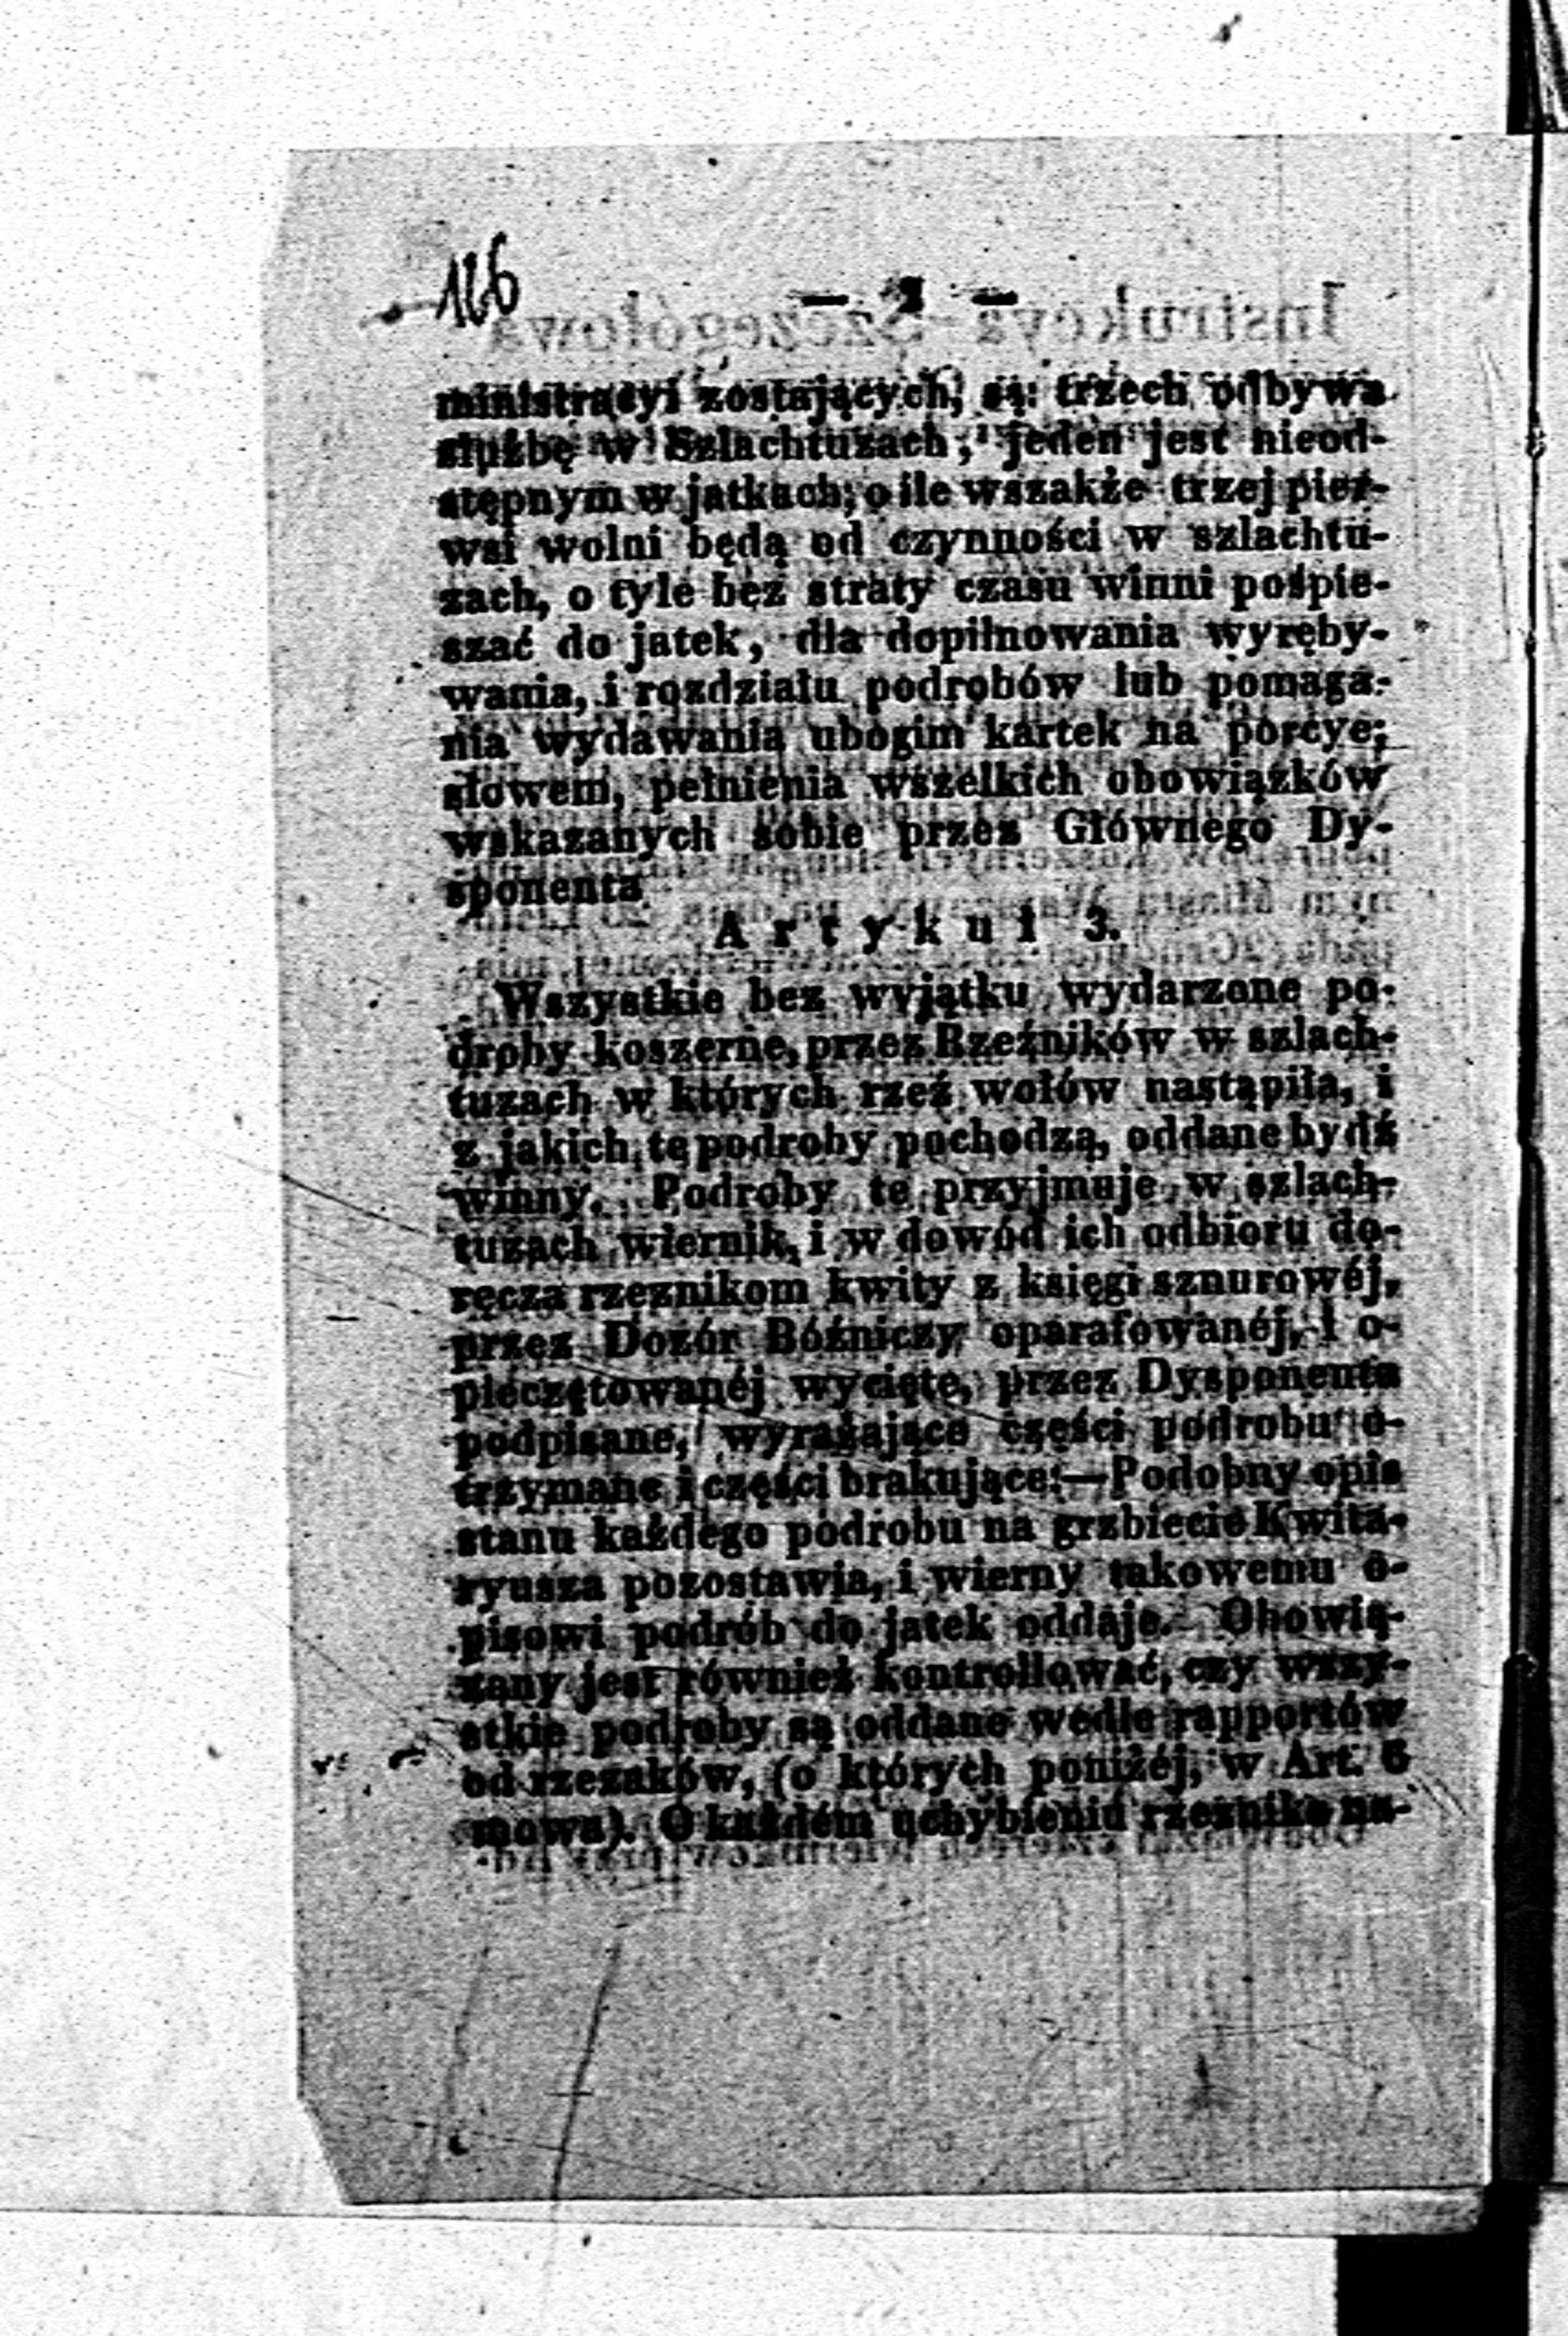 126
— 2 —
ministracyi zostających, są: trzech odbywa
służbę w Szlachtuzach, jeden jest nieod-
stępnym w jatkach; o ile wszakże trzej pier-
wsi wolni będą od czynności w szlachtu-
zach, o tyle bez straty czasu winni pośpie-
szać do jatek, dla dopilnowania wyręby-
wania, i rozdziału podrobów lub pomaga-
nia wydawania ubogim kartek na porcye;
słowem, pełnienia wszelkich obowiązków
wskazanych sobie przez Głównego Dy-
sponenta
Artykuł 3.
Wszystkie bez wyjątku wydarzone po-
droby koszerne, przez Rzeźników w szlach-
tuzach w których rzeź wołów nastąpiła, i
z jakich te podroby pochodzą, oddane bydź
winny. Podroby te przyjmuje w szlach-
tuzach wiernik, i w dowód ich odbioru do-
ręcza rzeznikom kwity z księgi sznurowéj,
przez Dozór Bóźniczy oparafowanéj, i o-
pieczętowanéj wycięte, przez Dysponenta
podpisane, wyrażające części podrobu o-
trzymane i części brakujące:—Podobny opis
stanu każdego podrobu na grzbiecie Kwita-
ryusza pozostawia, i wierny takowemu o-
pisowi podrób do jatek oddaje. Obowią-
zany jest również kontrollować, czy wszy-
stkie podroby są oddane wedle rapportów
od rzezaków, (o których poniżéj, w Art. 6
mowa). O każdém uchybieniu rzeznika na-